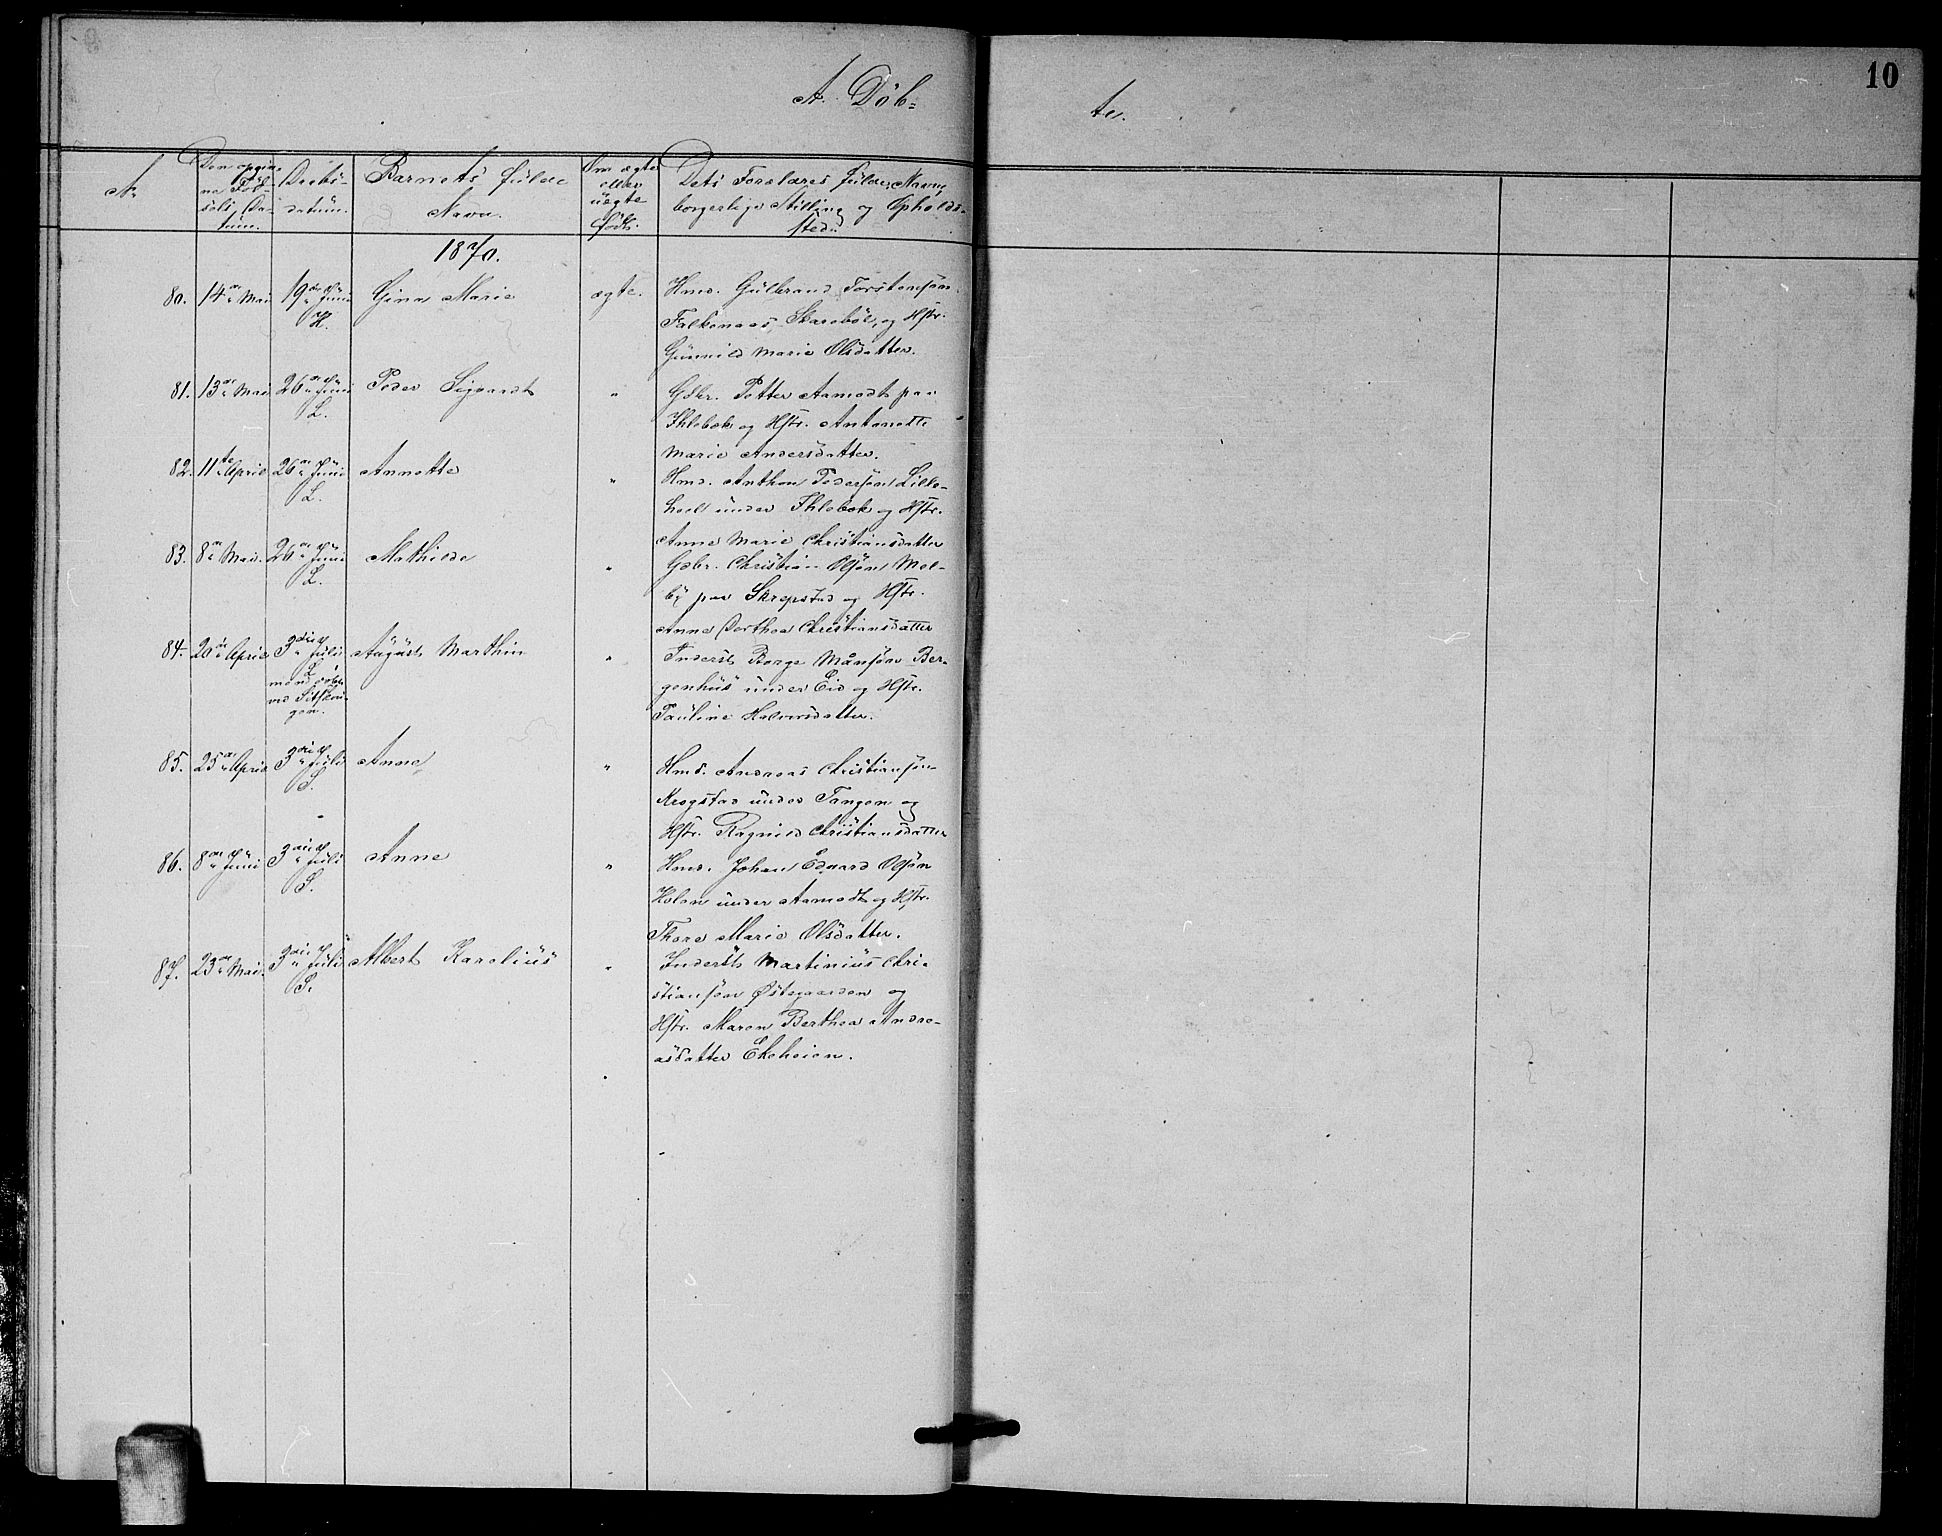 10
A. Döb-
te.
N
Den opgivne Födsels Datum.
Daabsdatum.
Barnets fulde Navn.
Om ægte eller uægte födt.
Dets Forældres fulde Navn, borgerlige Stilling og Opholdssted.
1870.
80. 14de Mai 19de Juni H. Gina Marie ægte. Hmd. Gulbrand Torstensön
Falkenaas, Skareböl, og Hstr.
Gunnild Marie Olsdatter.
81. 13de Mai 26de Juni L. Peder Sigvardt " Gdbr. Petter Aamodt paa
Ihlebæk og Hstr. Antonette
Marie Andersdatter.
82. 11te April 26de Juni L. Annette " Hmd. Anthon Pedersön Lille-
hoel under Ihlebæk og Hstr.
Anne Marie Christiansdatter
83. 8de Mai. 26de Juni L. Mathilde " Gdbr. Christian Olsön Mel-
by paa Skrepstad og Hstr.
Anne Dorthea Christiansdatter
84. 20de April 3die Juli L. August Marthin " Inderst Borge Månsön Ber-
genhus under Eid og Hstr.
Pauline Halvorsdatter.
85. 25de April 3die Juli S. Anne " Hmd. Andreas Christiansön
Krogstad under Tangen og
Hstr. Ragnild Christiansdatter
86. 8de Juni 3die Juli S. Anne " Hmd. Johan Edvard Olsön
Holen under Aamodt og Hstr.
Thore Marie Olsdatter.
87. 23de Mai. 3die Juli S. Albert Karelius " Inderst Martinius Chri-
stiansön Östegaarden og
Hstr. Maren Berthea Andre-
asdatter Ekeheien.